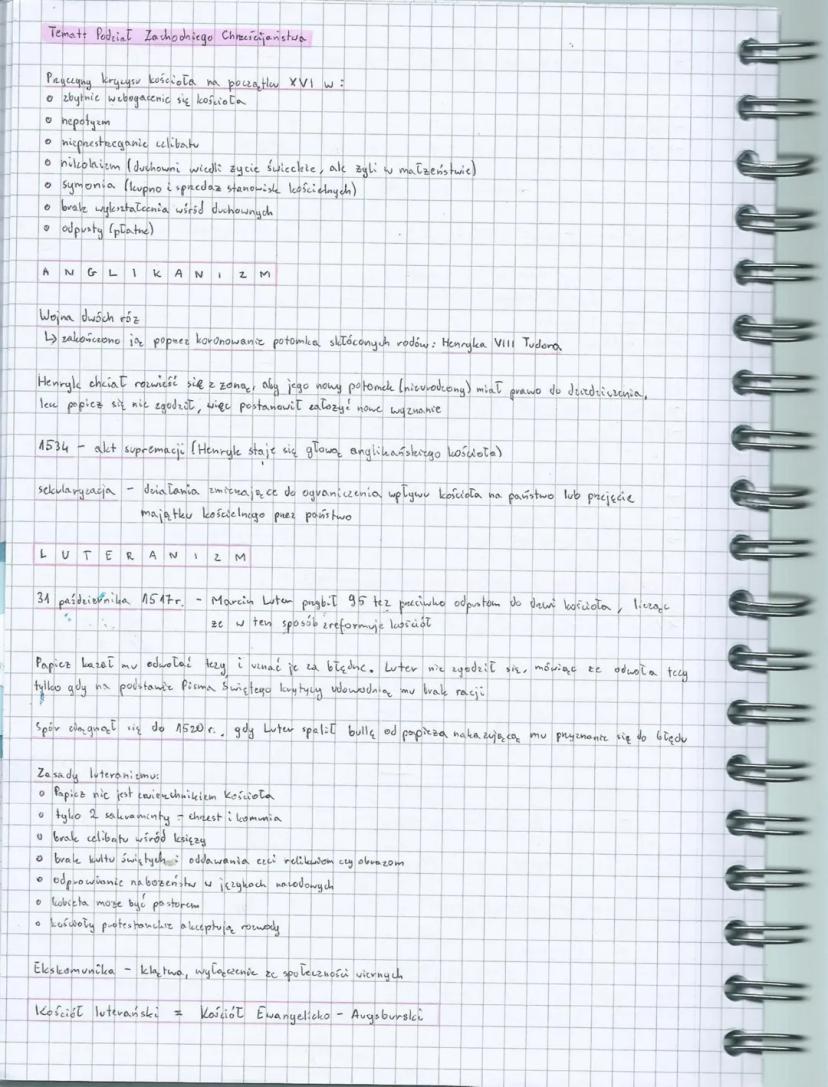 Temat: Podział Zachodniego Chrześcijaństwa
Przyczyny kryzysu kościoła na początku XVI w:
• zbytnie wzbogacenie się kościoła
• nepotyzm
• nieprzestrzeganie celibatu
• nikolaizm (duchowni wiedli życie świeckie, ale żyli w małżeństwie)
• symonia (kupno i sprzedaż stanowisk kościelnych)
• brak wykształcenia wśród duchownych
• odpusty (płatne)
ANGLIKANIZM
Wojna dwóch róż
↳ zakończono ją poprzez koronowanie potomka skłóconych rodów: Henryka VIII Tudora
Henryk chciał rozwieść się z żoną, aby jego nowy potomek (nieurodzony) miał prawo do dziedziczenia,
lecz papież się nie zgodził, więc postanowił założyć nowe wyznanie
1534 - akt supremacji (Henryk staje się głową anglikańskiego kościoła)
sekularyzacja - działania zmierzające do ograniczenia wpływu kościoła na państwo lub przejęcie
majątku kościelnego przez państwo
LUTERANIZM
31 października 1517r. - Marcin Luter przybił 95 tez przeciwko odpustom do drzwi kościoła, licząc
że w ten sposób zreformuje kościół
Papież kazał mu odwołać tezy i uznać je za błędne. Luter nie zgodził się, mówiąc że odwoła tezy
tylko gdy na podstawie Pisma Świętego krytycy udowodnią mu brak racji
Spór ciągnął się do 1520 r., gdy Luter spalił bullę od papieża nakazującą mu przyznanie się do błędu
Zasady luteranizmu:
• Papież nie jest zwierzchnikiem Kościoła
• tylko 2 sakramenty - chrzest i komunia
• brak celibatu wśród księży
• brak kultu świętych i oddawania czci relikwiom czy obrazom
• odprawianie nabożeństw w językach narodowych
• kobieta może być pastorem
• kościoły protestanckie akceptują rozwody
Ekskomunika - klątwa, wyłączenie ze społeczności wiernych
Kościół luterański = Kościół Ewangelicko - Augsburski